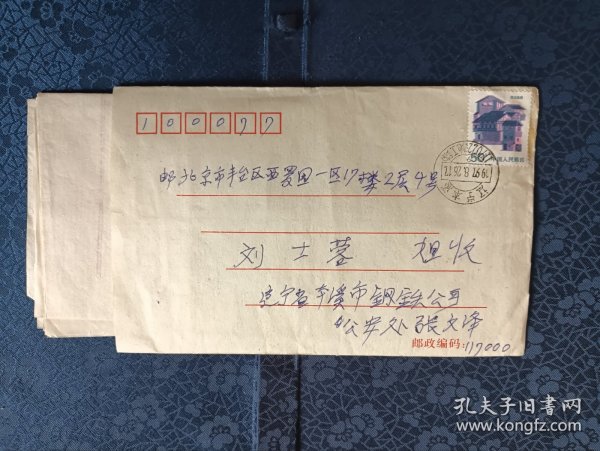 100077
50 中国人民邮政
辽宁本溪
邮北京市丰台区西罗园一区17楼2层4号
刘士蓉 姐收
辽宁省本溪市钢铁公司
公安处张文泽
邮政编码:117000
孔夫子旧书网
www.kongfz.com